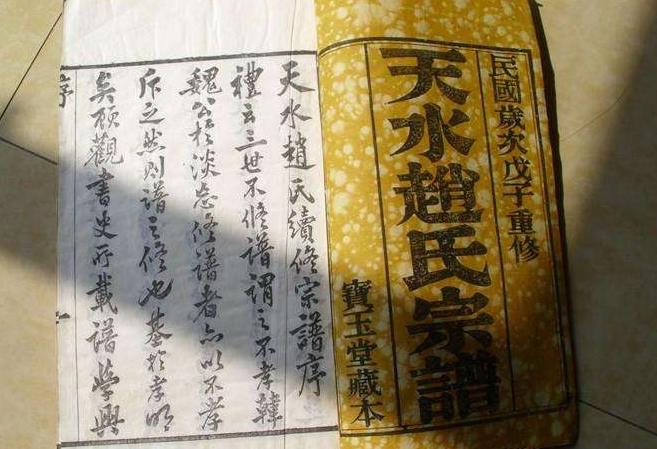 民國歲次戊子重修
天水趙氏宗譜
寶玉堂藏本
天水趙氏續修宗譜序
禮云三世不修譜謂之不孝韓
魏公於淡忘修譜者亦以不孝
斥之然則譜之修也基於孝明
矣顧觀書史所載譜學興
序